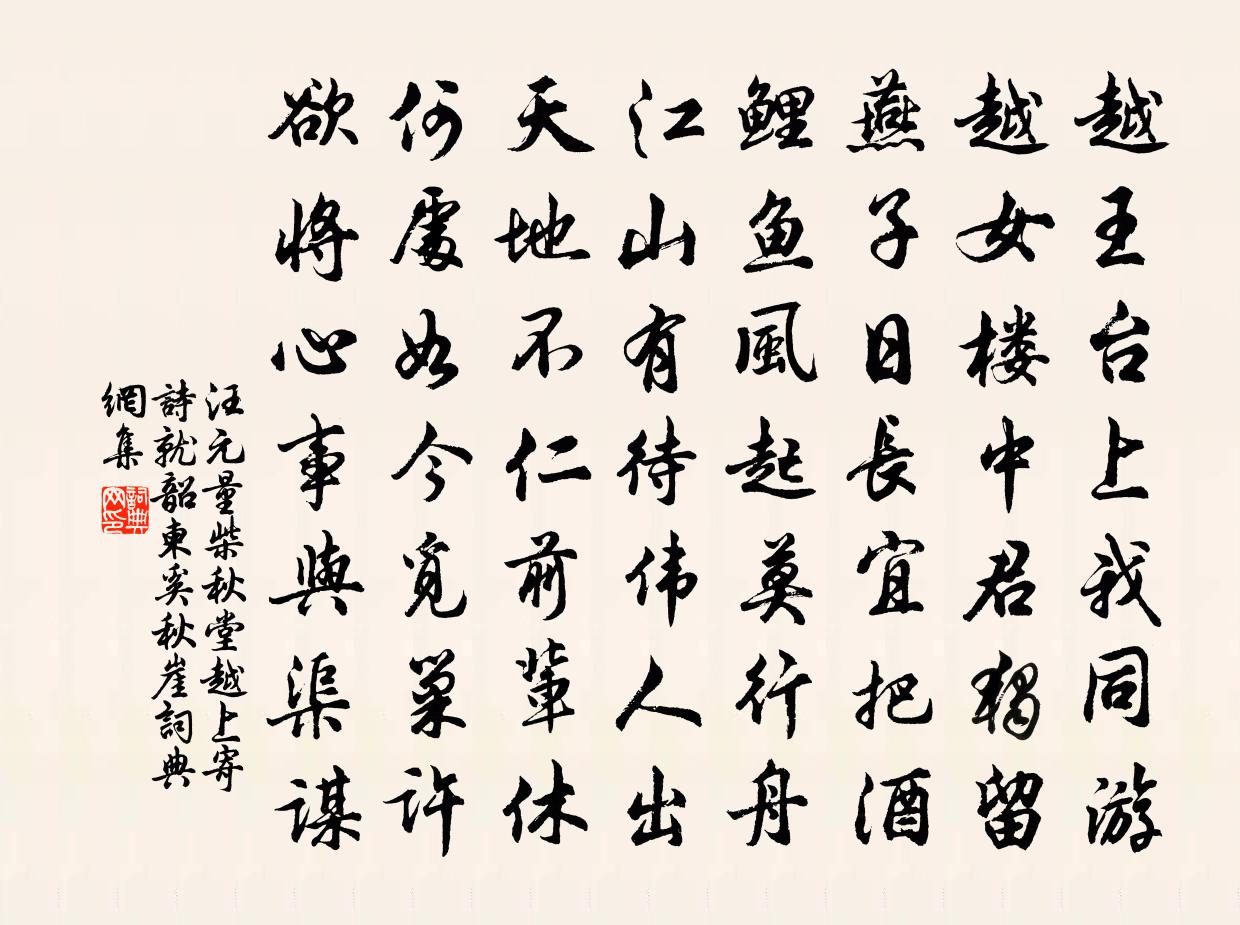 越王台上我同游
越女楼中君独留
燕子日長宜把酒
鲤鱼風起莫行舟
江山有待伟人出
天地不仁前輩休
何處如今覓巢許
欲将心事與渠謀
汪元量柴秋堂越上寄
詩就韶東奚秋崖詞典
網集
詞典
网印